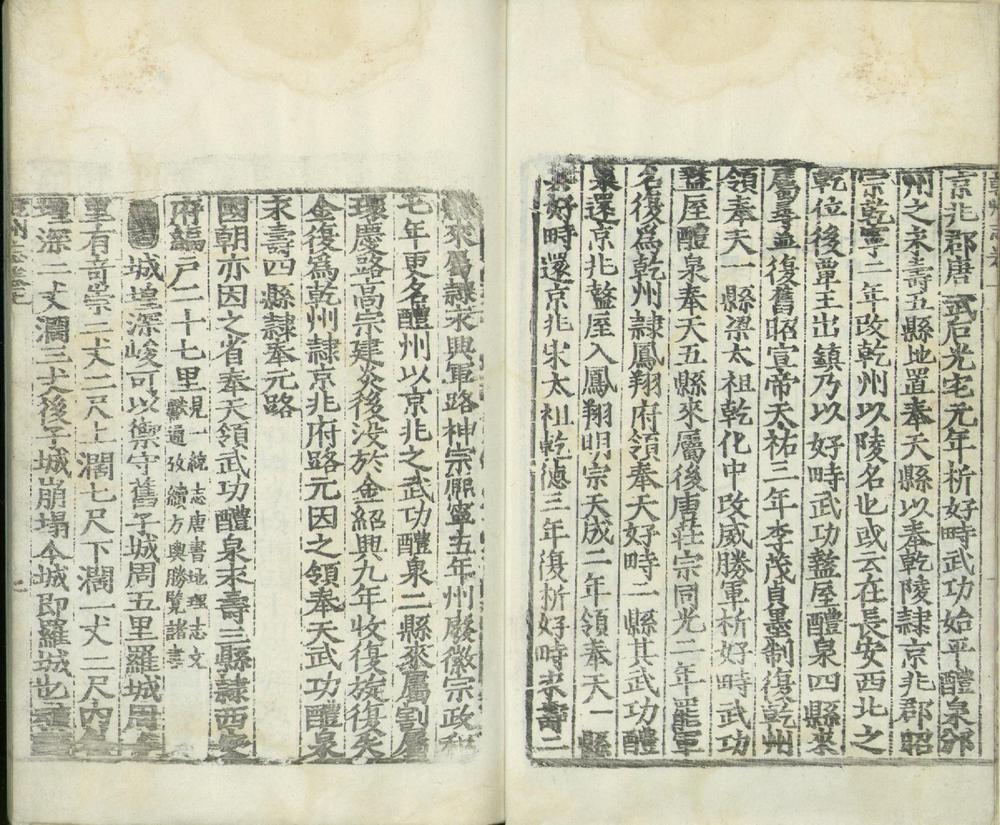 京兆郡唐武后光宅元年析好畤武功始平醴泉邠
州之永壽五縣地置奉天縣以奉乾陵隸京兆郡昭
宗乾寧二年改乾州以陵名也或云在長安西北之
乾位後覃王出鎮乃以好畤武功盩厔醴泉四縣來
屬尋並復舊昭宣帝天祐三年李茂貞墨制復乾州
領奉天一縣梁太祖乾化中改威勝軍析好畤武功
盩厔醴泉奉天五縣來屬後唐莊宗同光二年罷軍
名復為乾州隸鳳翔府領奉天好畤二縣其武功醴
泉還京兆盩厔入鳳翔明宗天成二年領奉天一縣
其好畤還京兆宋太祖乾德三年復析好畤永壽二
縣來屬隸永興軍路神宗熈寧五年州廢徽宗政和
七年更名醴州以京兆之武功醴泉二縣來屬割屬
環慶路高宗建炎後没於金紹興九年收復旋復失
金復為乾州隸京兆府路元因之領奉天武功醴泉
永壽四縣隸奉元路
國朝亦因之省奉天領武功醴泉永壽三縣隸西安
府編戶二十七里見一統志唐書地理志文
獻通攷續方輿勝覽諸書
城隍深峻可以禦守舊子城周五里羅城周
里有奇崇二丈二尺上濶七尺下濶一丈二尺內
隍深二丈濶三丈後子城崩塌今城即羅城也